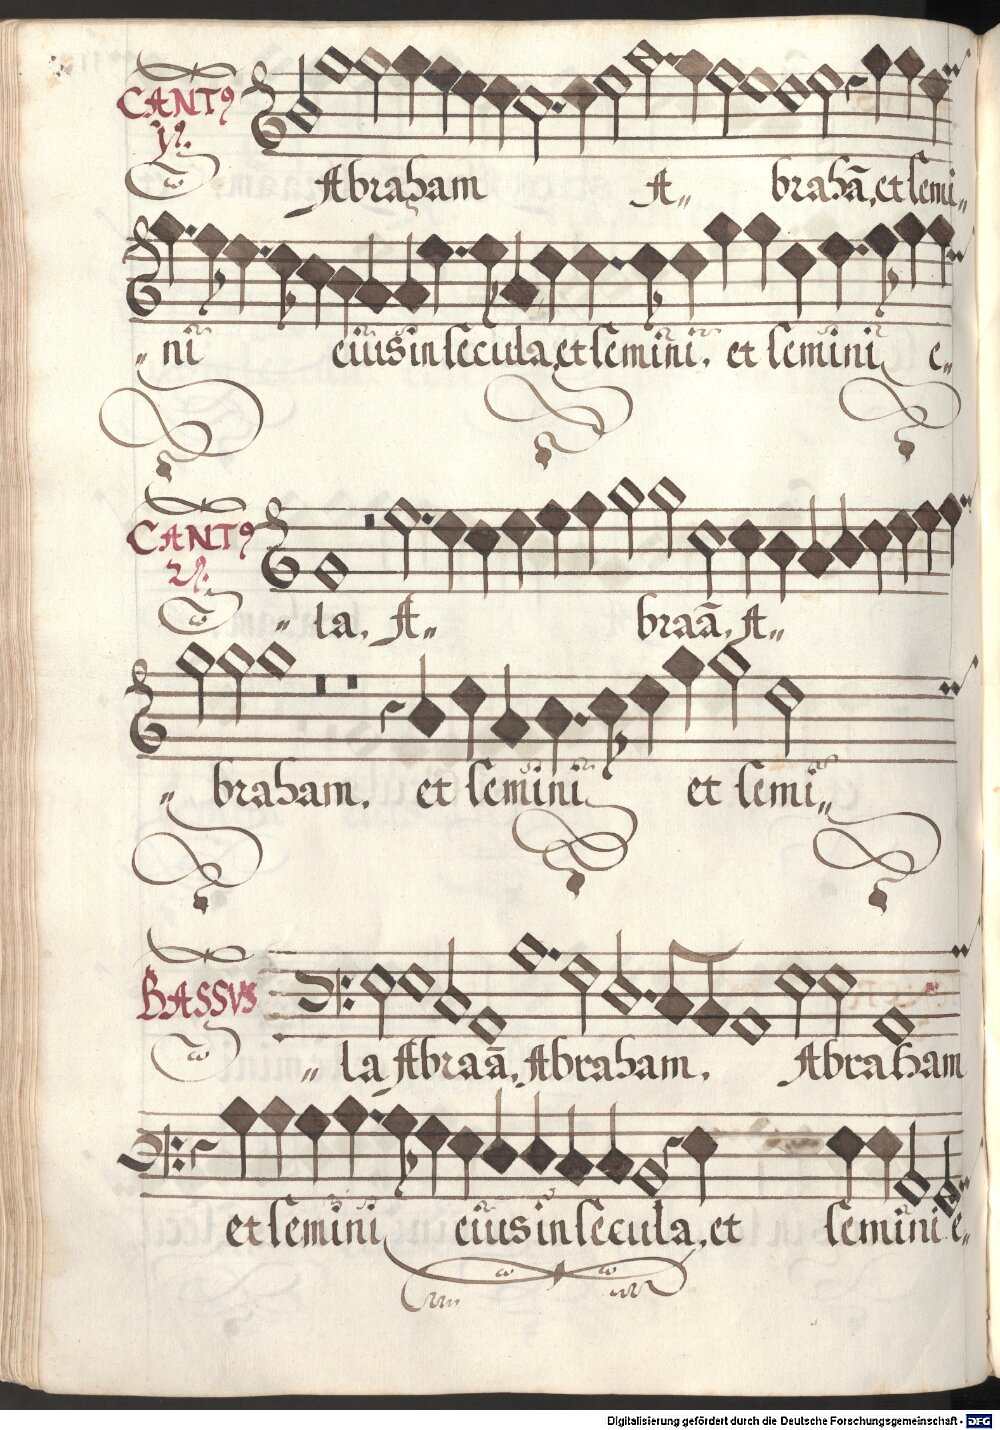 CANTꝰ
Abraham A„ brahã, et semi„
„ni eiusinsecula, et semini, et semini e„
CANTꝰ
„la, A„ braã, A„
„braham, et semini et semi„
BASSVS
„la Abraã, Abraham, Abraham
et semini eiusinsecula, et semini e„
Digitalisierung gefördert durch die Deutsche Forschungsgemeinschaft - DFG